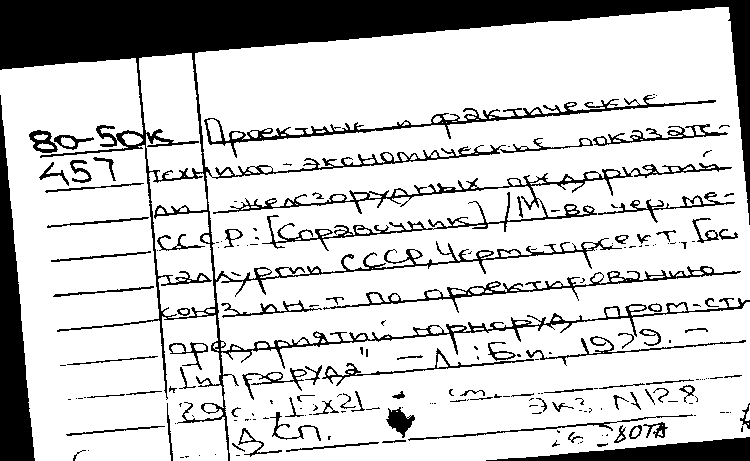 80-50к Проектные и фактические
457 технико-экономические показате-
ли железорудных предприятий
СССР: [Справочник] / М-во чер. ме-
таллургии СССР, Черметпроект, Гос.
союз. ин-т по проектированию
предприятий горноруд. пром-сти
"Гипроруда". – Л.: Б.и., 1979. –
29с.; 15х21 см.
Экз. N128
Д сп.